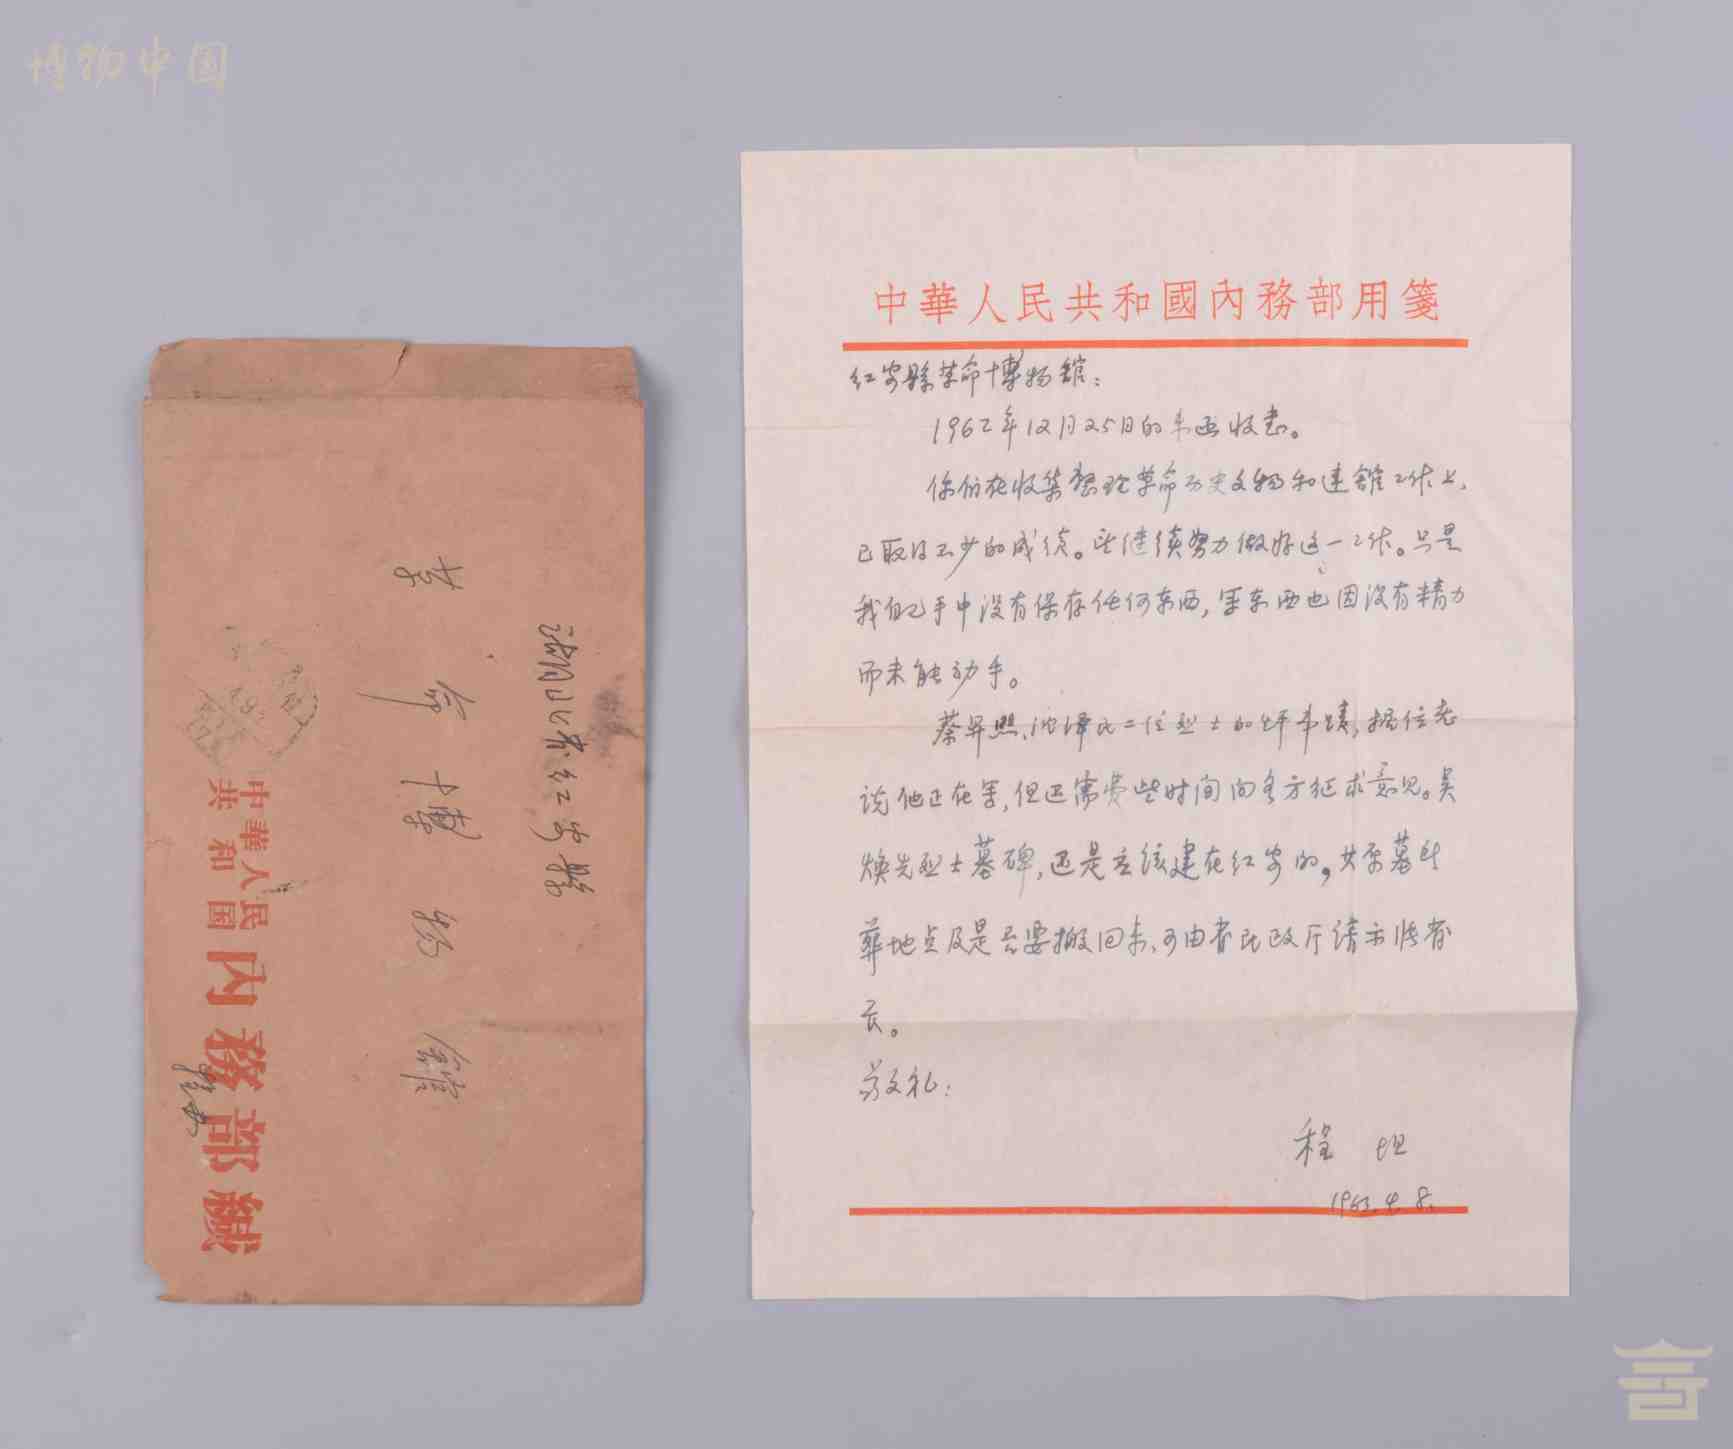 博物中国
中華人民共和國內務部用箋
红安縣革命博物館：
1962年12月25日的来函收悉。
你们在收集整理革命历史文物和建館工作上，
已取得不少的成绩。望继续努力做好这一工作。只是
我自己手中没有保存任何东西，写东西也因没有精力
而未能动手。
蔡升熙、沈泽民二位烈士的生平事蹟，据位老
说他正在写，但还需费些时间向各方征求意见。吴
焕先烈士墓碑，还是应该建在红安的，其原墓所
葬地点及是否要搬回来，可由省民政厅请示张省
长。
敬礼！
程坦
1963.4.8.
湖北省红安縣
革命博物館
中華人民
共和国
內務部緘
程坦